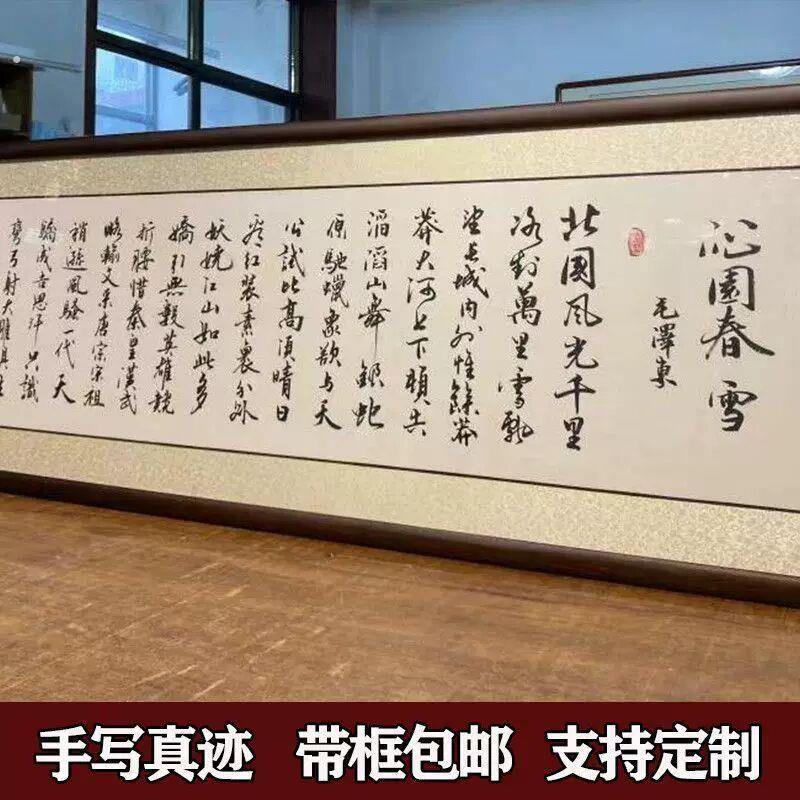 沁園春 雪
毛澤東
北國风光千里
冰封萬里雪飘
望长城内外惟餘莽
莽大河上下頓失
滔滔山舞銀蛇
原馳蠟象欲与天
公試比高須晴日
看红裝素裹分外
妖娆江山如此多
嬌引無數英雄競
折腰惜秦皇漢武
略輸文采唐宗宋祖
稍遜風騷一代天
驕成吉思汗只識
彎弓射大雕俱往
手写真迹 带框包邮 支持定制